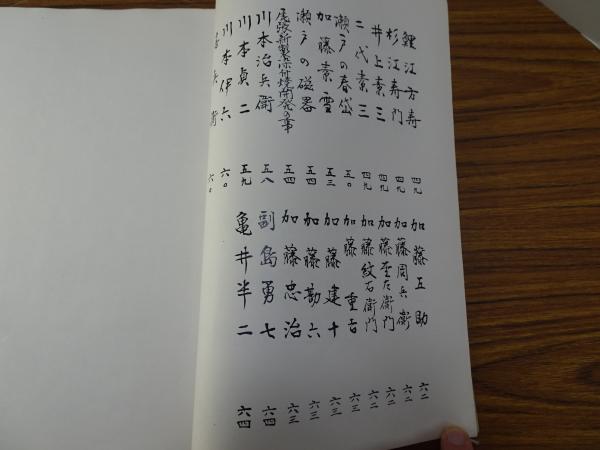 鯉江方寿 四九
杉江寿門 四九
井上素三 四九
二代素三 四九
瀬戸の春岱 五〇
加藤素雪 五三
瀬戸の磁器 五四
尾張新製染付焼開発の事 五四
川本治兵衛 五八
川本貞二 五九
川本伊六 六〇
兵衛 六〇
加藤五助 六二
加藤周兵衛 六二
加藤杢左衛門 六二
加藤紋右衛門 六二
加藤重吉 六三
加藤建十 六三
加藤勘六 六三
加藤忠治 六三
副島勇七 六四
亀井半二 六四